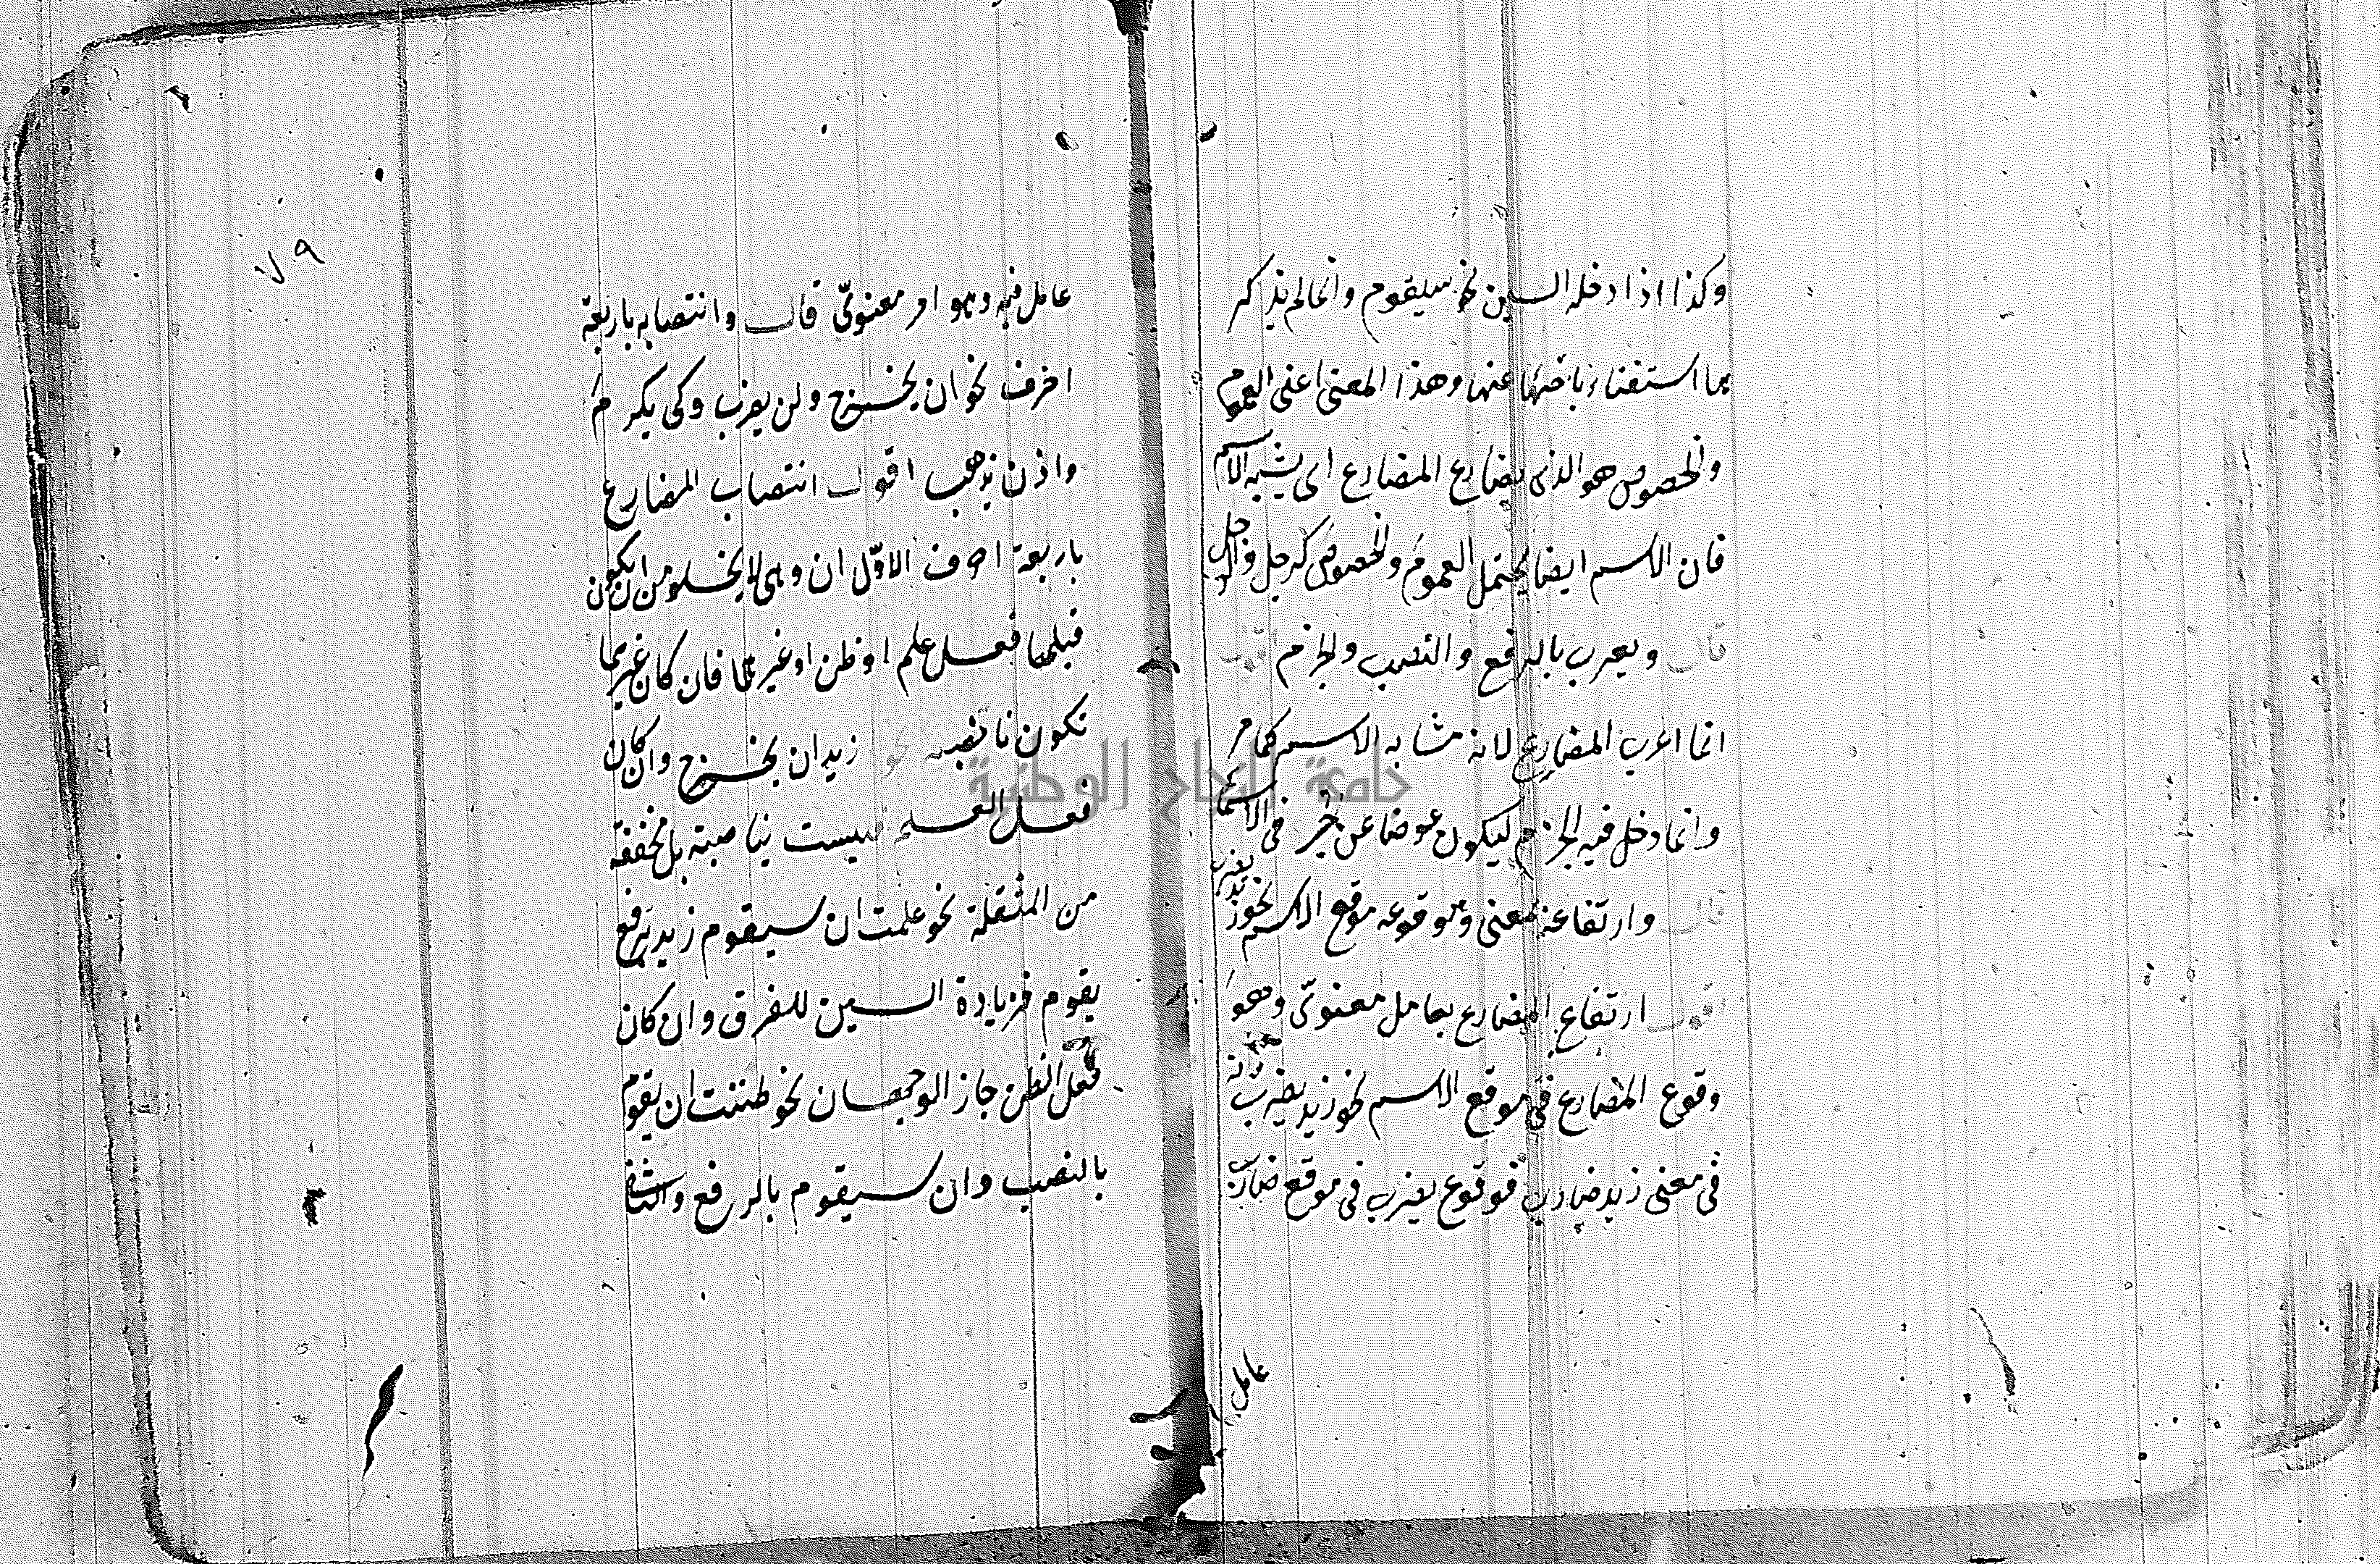 وكذا اذا دخله السين نحو سيقوم وانما لم يذكر
ها استغناء باختها عنها وهذا المعنى اعنى العموم
والخصوص هو الذى يضارع المضارع اى يشبه الاسم
فان الاسم ايضا يحتمل العموم والخصوص كرجل والرجل
قال ويعرب بالرفع والنصب والجزم اقول
انما اعرب المضارع لانه مشابه الاسم كما مر
وانما دخل فيه الجزم ليكون عوضا عن الجر فى الاسماء
قال وارتفاعه بمعنى وهو وقوعه موقع الاسم نحو زيد يضرب
اقول ارتفاع المضارع بعامل معنوىّ وهو
وقوع المضارع فى موقع الاسم نحو زيد يضرب فانه
فى معنى زيد ضارب فوقوع يضرب فى موقع ضارب
عامل
٧٩
عامل فيه وهو امر معنوىّ قال وانتصابه باربعة
احرف نحو ان يخرج ولن يضرب وكى يكرم
واذن يذهب اقول انتصاب المضارع
باربعة احرف الاوّل ان وهى لا يخلو من ان يكون
قبلها فعل علم او ظن او غيرهما فان كان غيرهما
تكون ناصبة نحو زيد ان يخرج وان كان
فعل العلم فليست بناصبة بل مخففة
من المثقلة نحو علمت ان سيقوم زيد برفع
يقوم فزيادة السين للفرق وان كان
فعل الظن جاز الوجهان نحو ظننت ان يقوم
بالنصب وان سيقوم بالرفع والثانى
جامعة النجاح الوطنية